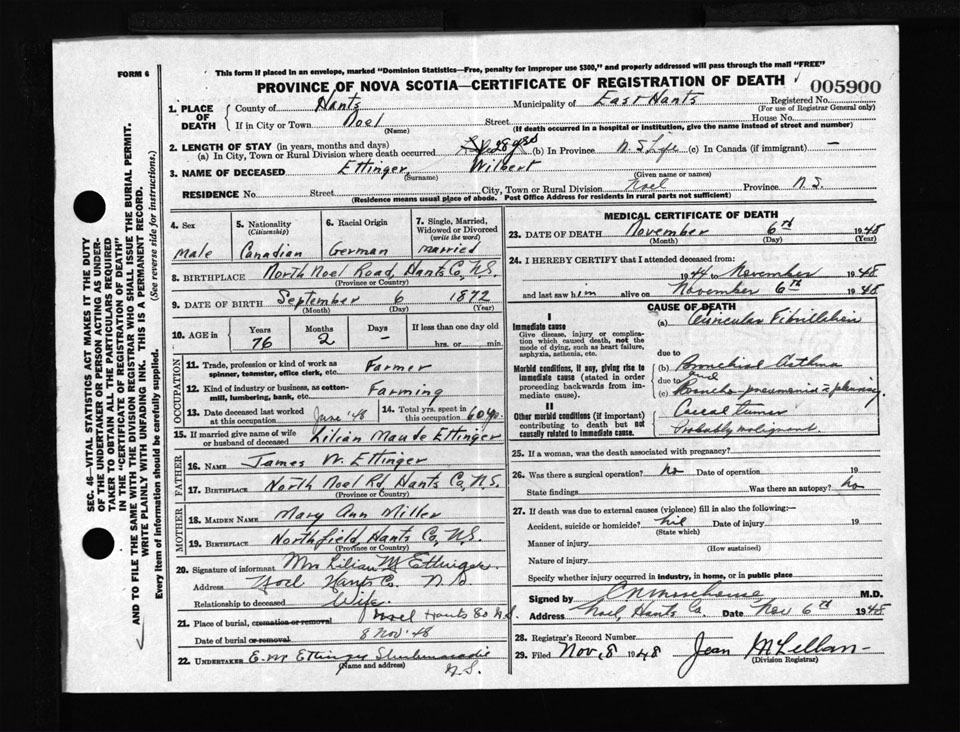 FORM 6
This form if placed in an envelope, marked "Dominion Statistics—Free, penalty for improper use $300," and properly addressed will pass through the mail "FREE"
PROVINCE OF NOVA SCOTIA—CERTIFICATE OF REGISTRATION OF DEATH
005900
1. PLACE OF DEATH
County of Hants Municipality of East Hants Registered No.
(For use of Registrar General only)
If in City or Town Noel Street House No.
(Name) (If death occurred in a hospital or institution, give the name instead of street and number)
2. LENGTH OF STAY (in years, months and days)
(a) In City, Town or Rural Division where death occurred 28 yrs (b) In Province N.S. Life (c) In Canada (if immigrant) —
3. NAME OF DECEASED Ettinger, Wilbert
(Surname) (Given name or names)
RESIDENCE No. Street City, Town or Rural Division Noel Province N.S.
(Residence means usual place of abode. Post Office Address for residents in rural parts not sufficient)
4. Sex
Male
5. Nationality
(Citizenship)
Canadian
6. Racial Origin
German
7. Single, Married, Widowed or Divorced
(write the word)
Married
8. BIRTHPLACE North Noel Road, Hants Co, N.S.
(Province or Country)
9. DATE OF BIRTH September 6 1872
(Month) (Day) (Year)
10. AGE in
Years Months Days If less than one day old
76 2 - hrs. or min.
OCCUPATION
11. Trade, profession or kind of work as spinner, teamster, office clerk, etc. Farmer
12. Kind of industry or business, as cotton-mill, lumbering, bank, etc. Farming
13. Date deceased last worked at this occupation June '48
14. Total yrs. spent in this occupation 60 yrs.
15. If married give name of wife or husband of deceased Lilian Maude Ettinger
FATHER
16. NAME James W. Ettinger
17. BIRTHPLACE North Noel Rd, Hants Co, N.S.
(Province or Country)
MOTHER
18. MAIDEN NAME Mary Ann Miller
19. BIRTHPLACE Northfield, Hants Co, N.S.
(Province or Country)
20. Signature of informant Mrs Lilian M. Ettinger
Address Noel Hants Co. N.S.
Relationship to deceased Wife
21. Place of burial, cremation or removal Noel Hants Co N.S.
Date of burial or removal 8 Nov '48
22. UNDERTAKER E.M Ettinger Shubenacadie
(Name and address) N.S.
MEDICAL CERTIFICATE OF DEATH
23. DATE OF DEATH November 6th 1948
(Month) (Day) (Year)
24. I HEREBY CERTIFY that I attended deceased from:
1944 to November 1948
and last saw him alive on November 6th 1948
CAUSE OF DEATH
I
Immediate cause
Give disease, injury or complication which caused death, not the mode of dying, such as heart failure, asphyxia, asthenia, etc.
(a) Auricular Fibrillation
due to
Morbid conditions, if any, giving rise to immediate cause (stated in order proceeding backwards from immediate cause).
(b) Bronchial Asthma
due to and
(c) Broncho pneumonia c pleurisy
II
Other morbid conditions (if important) contributing to death but not causally related to immediate cause.
Caecal tumor
Probably malignant
25. If a woman, was the death associated with pregnancy?
26. Was there a surgical operation? no Date of operation 19
State findings Was there an autopsy? no
27. If death was due to external causes (violence) fill in also the following:-
Accident, suicide or homicide? nil Date of injury 19
(State which)
Manner of injury
(How sustained)
Nature of injury
Specify whether injury occurred in industry, in home, or in public place
Signed by C N Morehouse M.D.
Address Noel, Hants Co. Date Nov 6th 1948
28. Registrar's Record Number
29. Filed Nov. 8 1948 Jean McLellan
(Division Registrar)
SEC. 46—VITAL STATISTICS ACT MAKES IT THE DUTY OF THE UNDERTAKER OR PERSON ACTING AS UNDERTAKER TO OBTAIN ALL THE PARTICULARS REQUIRED IN THE "CERTIFICATE OF REGISTRATION OF DEATH" AND TO FILE THE SAME WITH THE DIVISION REGISTRAR WHO SHALL ISSUE THE BURIAL PERMIT.
WRITE PLAINLY WITH UNFADING INK. THIS IS A PERMANENT RECORD.
Every item of information should be carefully supplied. (See reverse side for instructions.)